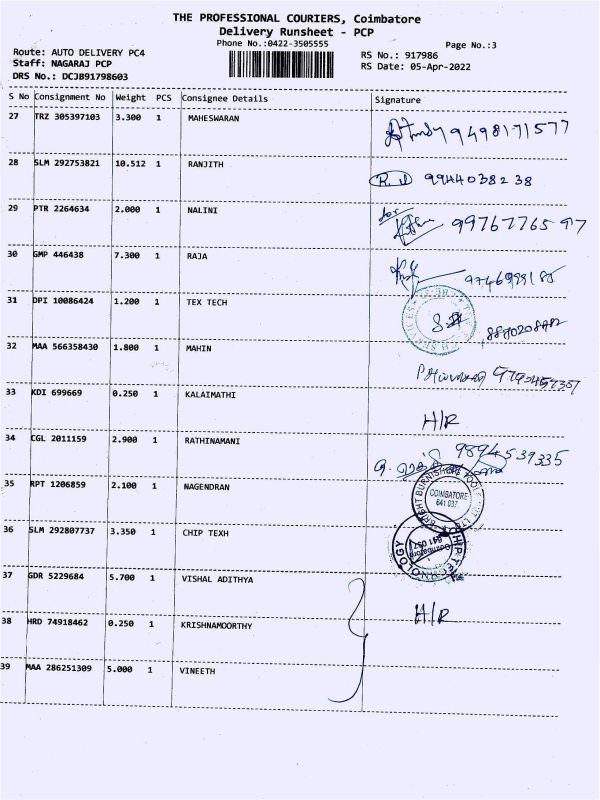 THE PROFESSIONAL COURIERS, Coimbatore
Delivery Runsheet - PCP
Phone No.:0422-3505555
Page No.:3
Route: AUTO DELIVERY PC4
RS No.: 917986
Staff: NAGARAJ PCP
RS Date: 05-Apr-2022
DRS No.: DCJB91798603
S No Consignment No Weight PCS Consignee Details Signature
27 TRZ 305397103 3.300 1 MAHESWARAN 9498171577
28 SLM 292753821 10.512 1 RANJITH 9944038238
29 PTR 2264634 2.000 1 NALINI 9976776597
30 GMP 446438 7.300 1 RAJA
31 DPI 10086424 1.200 1 TEX TECH
32 MAA 566358430 1.800 1 MAHIN
33 KDI 699669 0.250 1 KALAIMATHI H/R
34 CGL 2011159 2.900 1 RATHINAMANI 9894539335
35 RPT 1206859 2.100 1 NAGENDRAN
COIMBATORE
641 037
36 SLM 292807737 3.350 1 CHIP TEXH
37 GDR 5229684 5.700 1 VISHAL ADITHYA
38 HRD 74918462 0.250 1 KRISHNAMOORTHY H/R
39 MAA 286251309 5.000 1 VINEETH